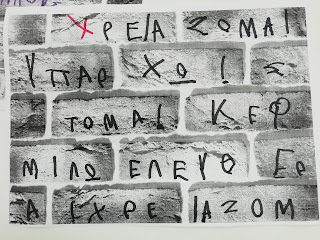 ΧΡΕΙΑΖΟΜΑΙ
ΥΠΑΡΧΩ! Σ
ΤΟΜΑΙ ΚΕΡ
ΜΙΛΩ ΕΛΕΥΘΕΡ
Α ΓΧΡΕΙΑΖΟΜ